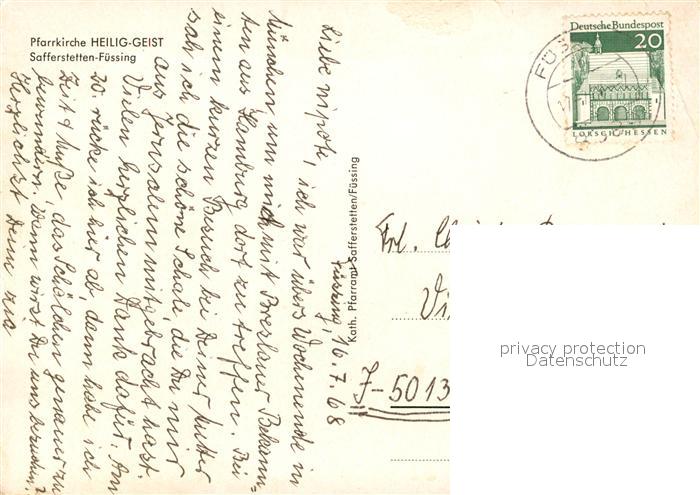 Pfarrkirche HEILIG-GEIST
Safferstetten-Füssing
Deutsche Bundespost
20
LORSCH/HESSEN
Kath. Pfarramt Safferstetten/Füssing
Füssing, 16.7.68
Liebe nipote, ich war übers Wochenende in
München um mich mit Breslauer Bekann-
ten aus Hamburg dort zu treffen. Bei
einem kurzen Besuch bei Deiner Mutter
sah ich die schöne Schale, die Du mir
aus Jerusalem mitgebracht hast.
Vielen herzlichen Dank dafür. Am
20. rücke ich hier ab, dann habe ich
Zeit & Muße das Schälchen genauer zu
bewundern. Wann wirst Du uns besuchen?
Herzlichst Deine zia
Frl.
J-5013
privacy protection
Datenschutz